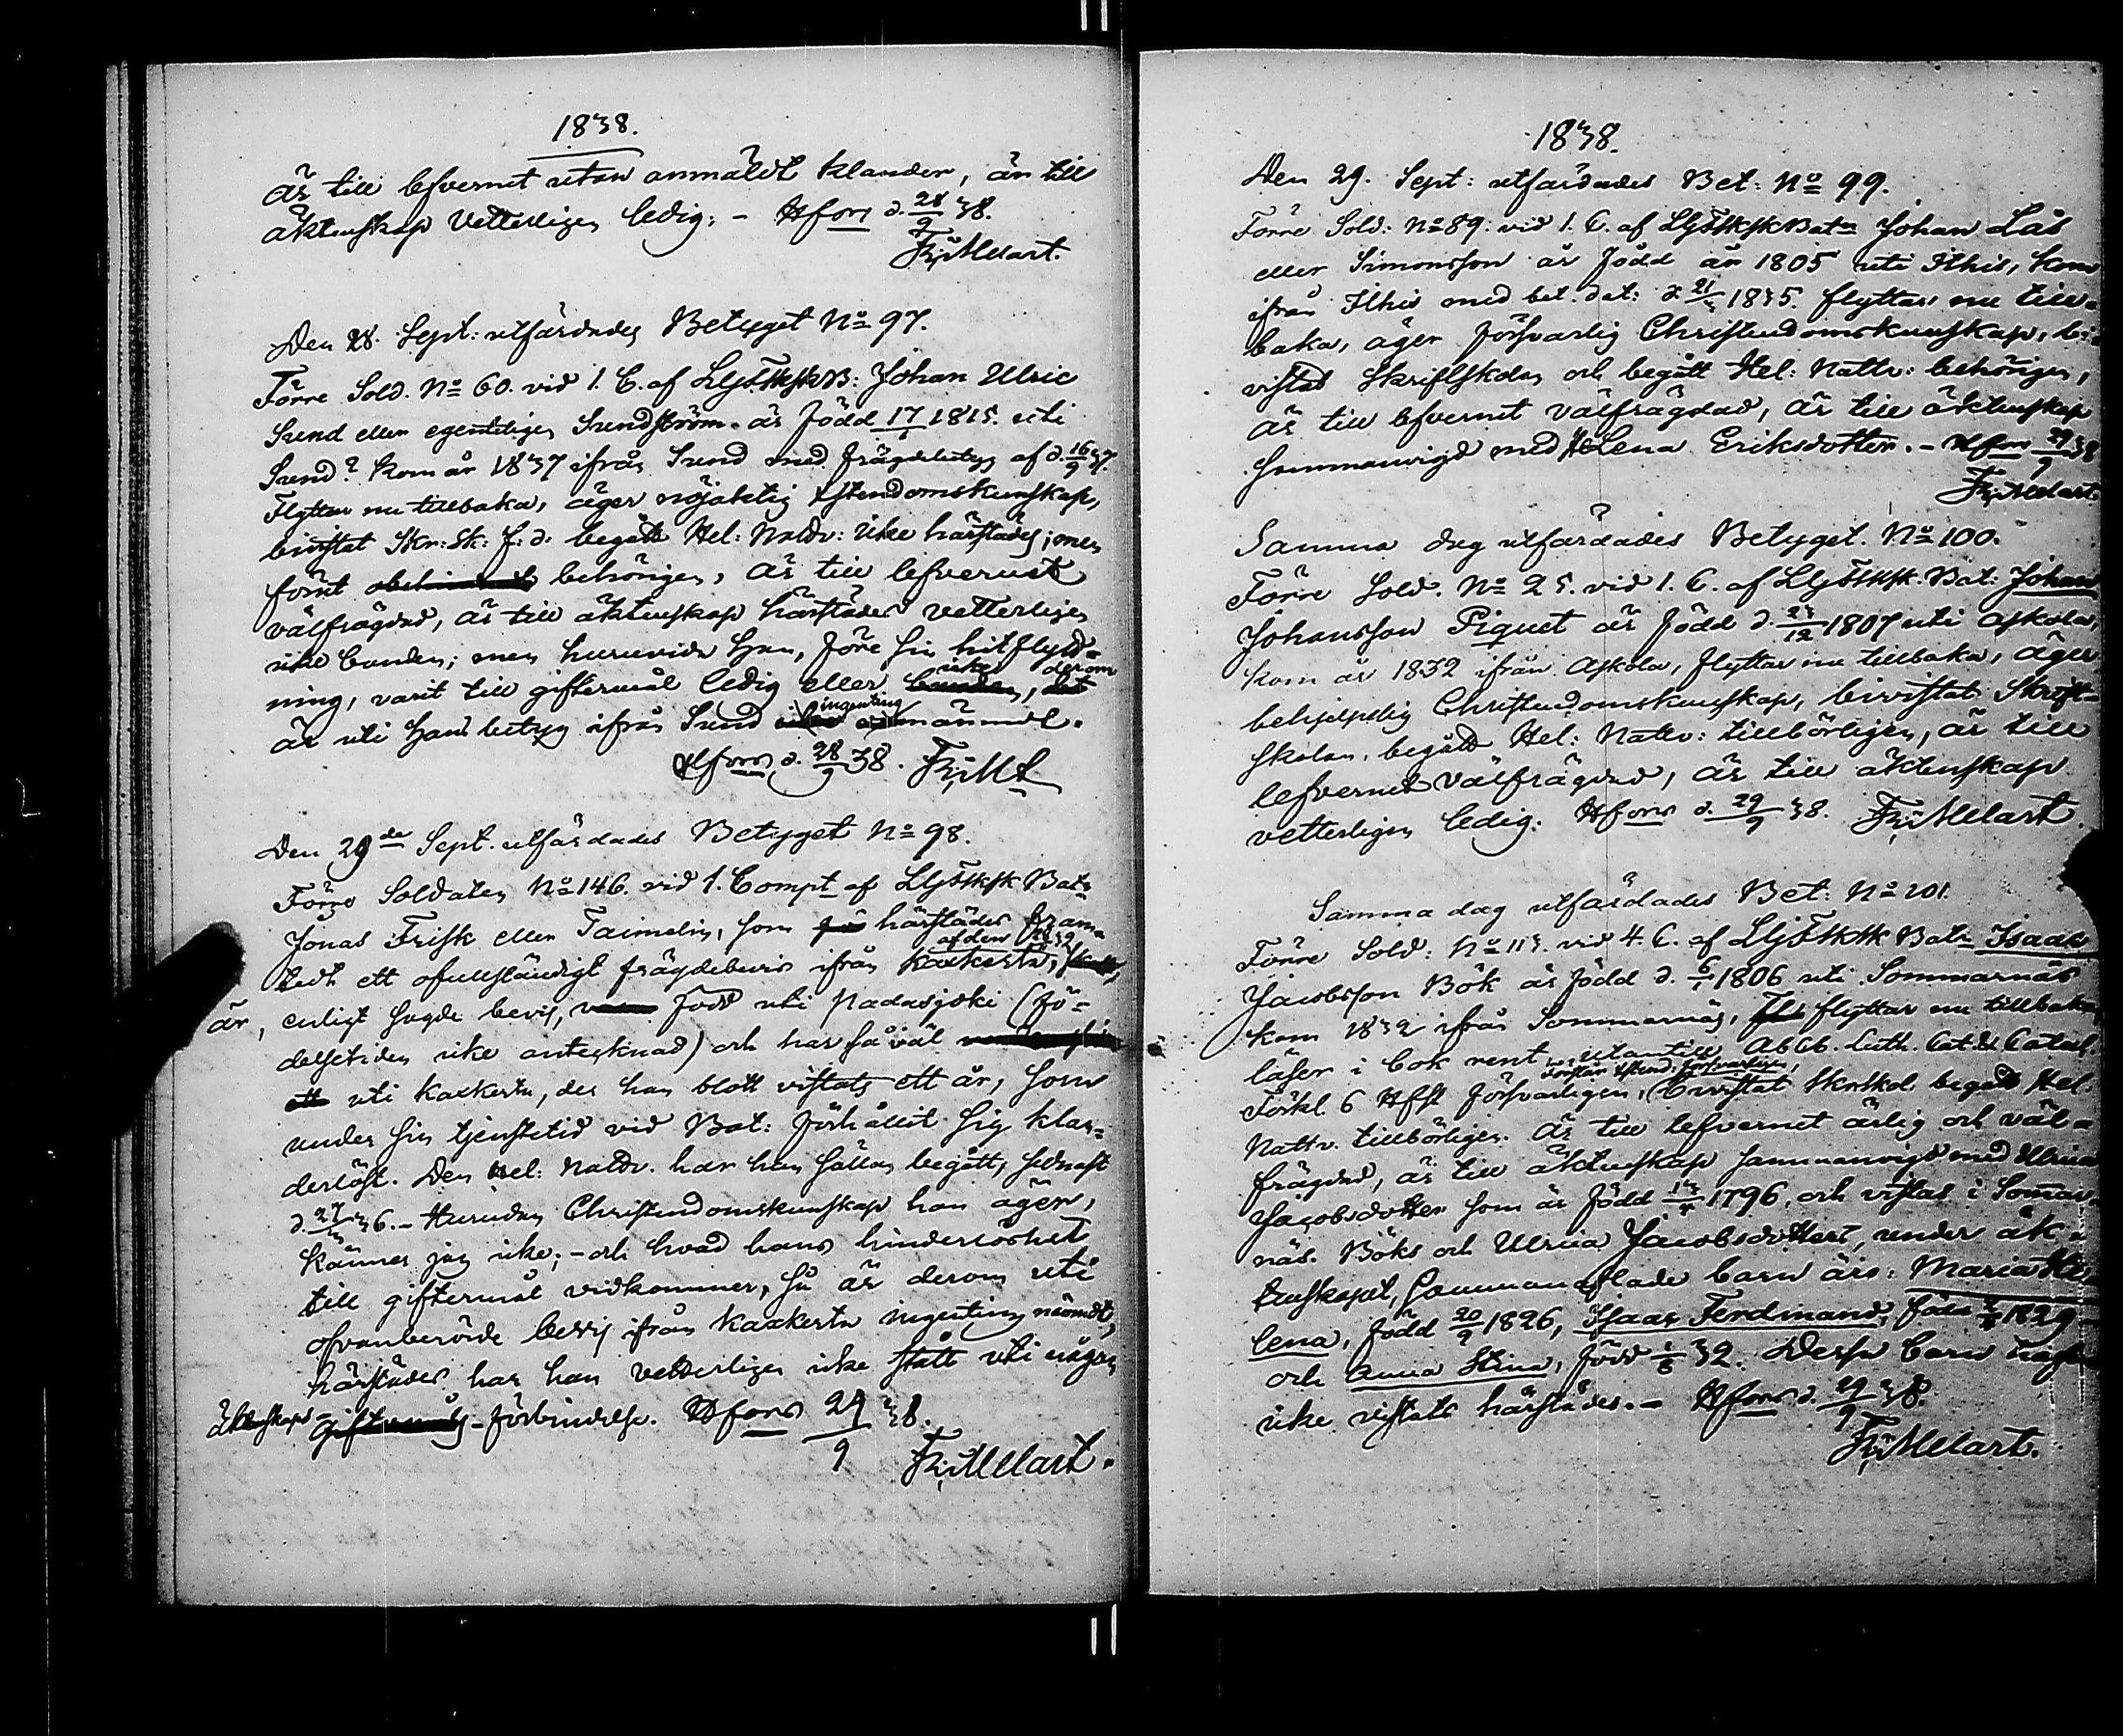 1838.
är till lefvernet utan anmäldt klander, än till
äktenskap vetterligen ledig. - Hfors d. 28/9 38.
Fr: Melart.
Den 28. Sept: utfärdades Betyget No 97.
Förre Sold. No 60. vid 1. C. af LGSkskB: Johan Ulric
Sund eller egentligen Sundström. är född 17/1 1815. uti
Sund? Kom år 1837 ifrån Sund med frägdebetyg af d. 16/9 37.
Flyttar nu tillbaka, äger nöjaktig Xstendomskunskap,
bivistat Skr: Sk: f: d. begått Hel: Nattv: icke härstädes; men
förut behörigen, är till lefvernet
välfrägdad, är till äktenskap härstädes vetterligen
icke bunden; men huruvida han, före sin hitflytt-
ning, varit till giftermål ledig eller icke, derom
är uti hans betyg ifrån Sund ingenting nämndt.
Hfors d. 28/9 38. Fr: Mt
Den 29de Sept. utfärdades Betyget No 98.
Förre Soldaten No 146. vid 1. Compt af LGSksk Batn
Jonas Frisk eller Taimelin, som härstädes fram-
tedt ett ofullständigt frägdebevis ifrån Kaxkerta, af den 1832
är, enligt sagde bevis, född uti Padasjoki (fö-
delsetiden icke antecknad) och har så väl
uti Kaxkerta, der han blott vistats ett år, som
under sin tjenstetid vid Bat: förhållit sig klan-
derlöst. Den Hel: Nattv. har han sällan begått, sednast
d. 27/3 36. - Hurudan Christendomskunskap han äger,
känner jag icke; - och hvad hans hinderlöshet
till giftermål vidkommer, så är derom uti
ofvanberörde bevis ifrån Kaxkerta ingenting nämndt,
härstädes har han vetterligen icke stått uti någon
äktenskaps-förbindelse. Hfors 29/9 38.
Fr: Melart.
1838.
Den 29. Sept: utfärdades Bet: No 99.
Förre Sold: No 89: vid 1. C. af LGSkskBatn Johan Lås
eller Simonsson är född år 1805 uti Ithis, kom
ifrån Ithis med bet. dat: d. 21/3 1835. flyttar nu till-
baka, äger försvarlig Christendomskunskap, bi-
vistat Skriftskolan och begått Hel: Nattv: behörigen,
är till lefvernet välfrägdad, är till äktenskap
sammanvigd med Lena Eriksdotter. - Hfors 29/9 38
Fr: Melart.
Samma dag utfärdades Betyget. No 100.
Förre Sold. No 25. vid 1. C. af LGSksk. Bat: Johan
Johansson Piquet är född d. 23/12 1807 uti Askola,
kom år 1832 ifrån Askola, flyttar nu tillbaka, äger
behjelplig Christendomskunskap, bivistat Skrift-
skolan, begått Hel: Nattv: tillbörligen, är till
lefvernet välfrägdad, är till äktenskap
vetterligen ledig. Hfors d. 29/9 38. Fr: Melart.
Samma dag utfärdades Bet: No 201.
Förre Sold: No 113. vid 4. C. af LGSksk Batn Isaac
Jacobsson Bök är född d. 6/1 1806 uti Sommarnäs
kom 1832 ifrån Sommarnäs, flyttar nu tillbaka,
läser i bok rent, utantill Abcb. Luth. Cat.
Förkl. 6 Hfst försvarligen, bivistat Skrskol. begått Hel.
Nattv. tillbörligen. är till lefvernet ärlig och väl-
frägdad, är till äktenskap sammanvigd med Ulrica
Jacobsdotter som är född 1796, och vistas i Somar-
näs. Böks och Ulrica Jacobsdotters, under äk-
tenskapet, sammanaflade barn äro: Maria He-
lena, född 20/9 1826, Isaac Ferdinand, född 1829
och Anna Stina, född 32. Dessa barn hafva
icke vistats härstädes. - Hfors d. 29/9 38.
Fr: Melart.